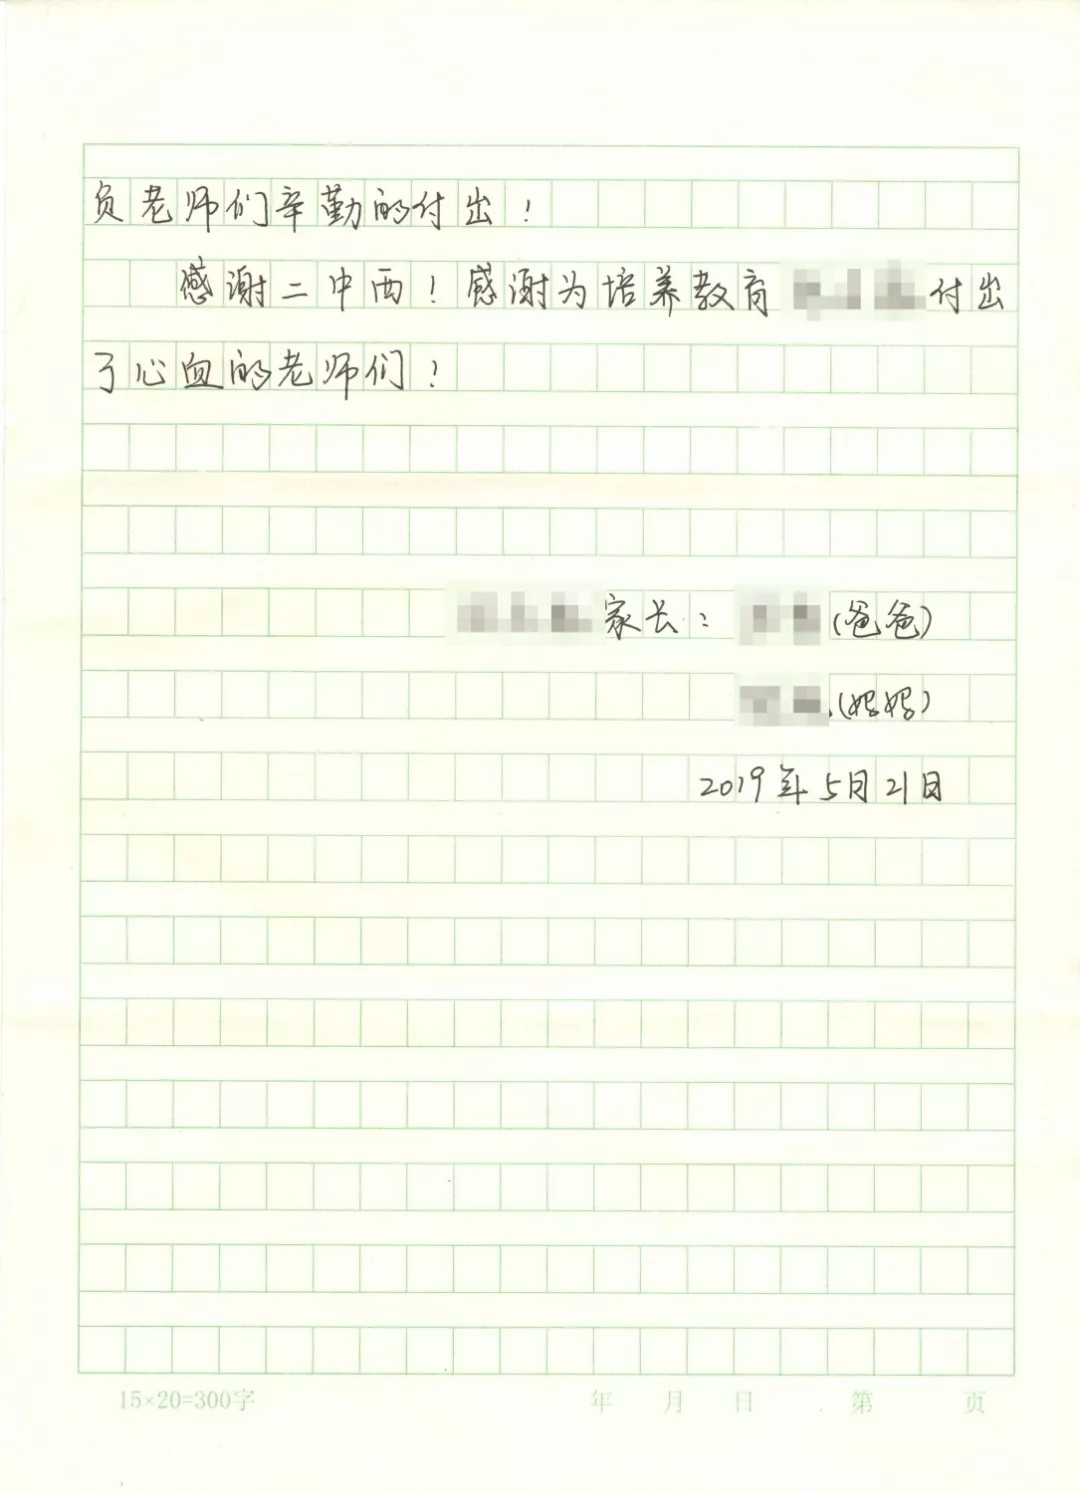 负老师们辛勤的付出！
感谢二中西！感谢为培养教育付出
了心血的老师们！
家长：(爸爸)
(妈妈)
2019年5月21日
15×20=300字 年 月 日 第 页